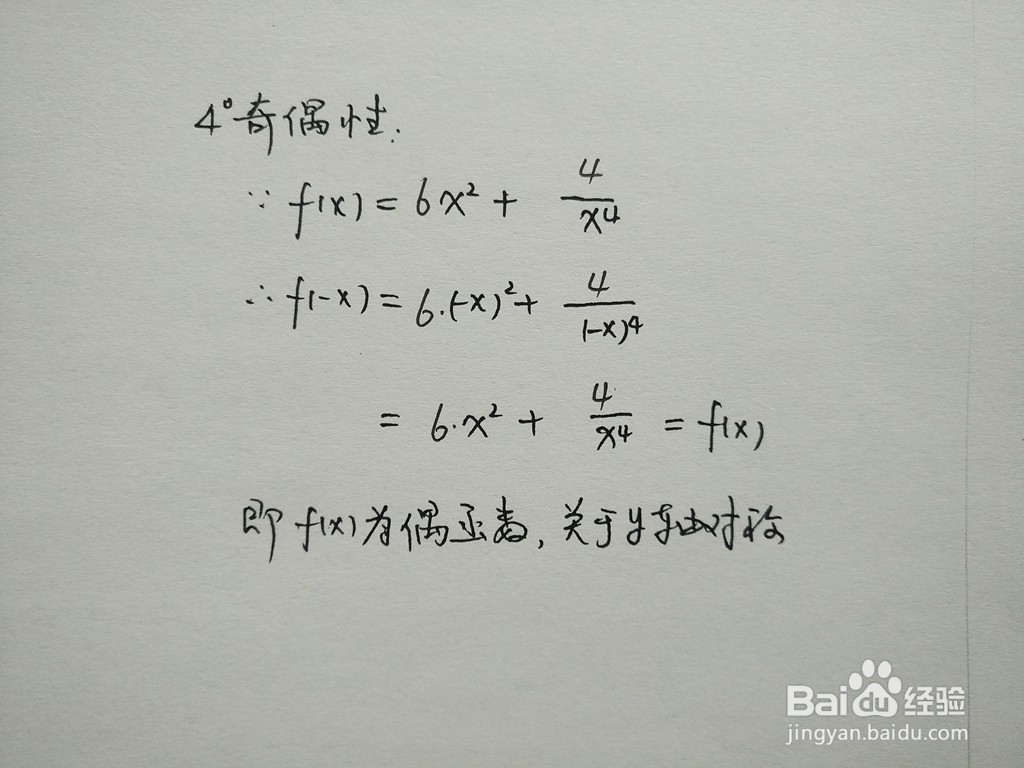 4°奇偶性.
∵ f(x) = 6x² + 4/x⁴
∴ f(-x) = 6·(-x)² + 4/(-x)⁴
= 6·x² + 4/x⁴ = f(x)
即f(x)为偶函数,关于y轴对称
Baidu经验
jingyan.baidu.com